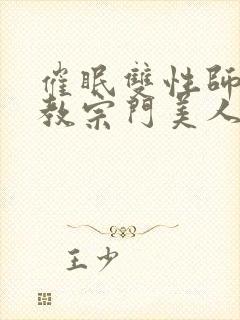 催眠雙性師
教宗門美人
王少